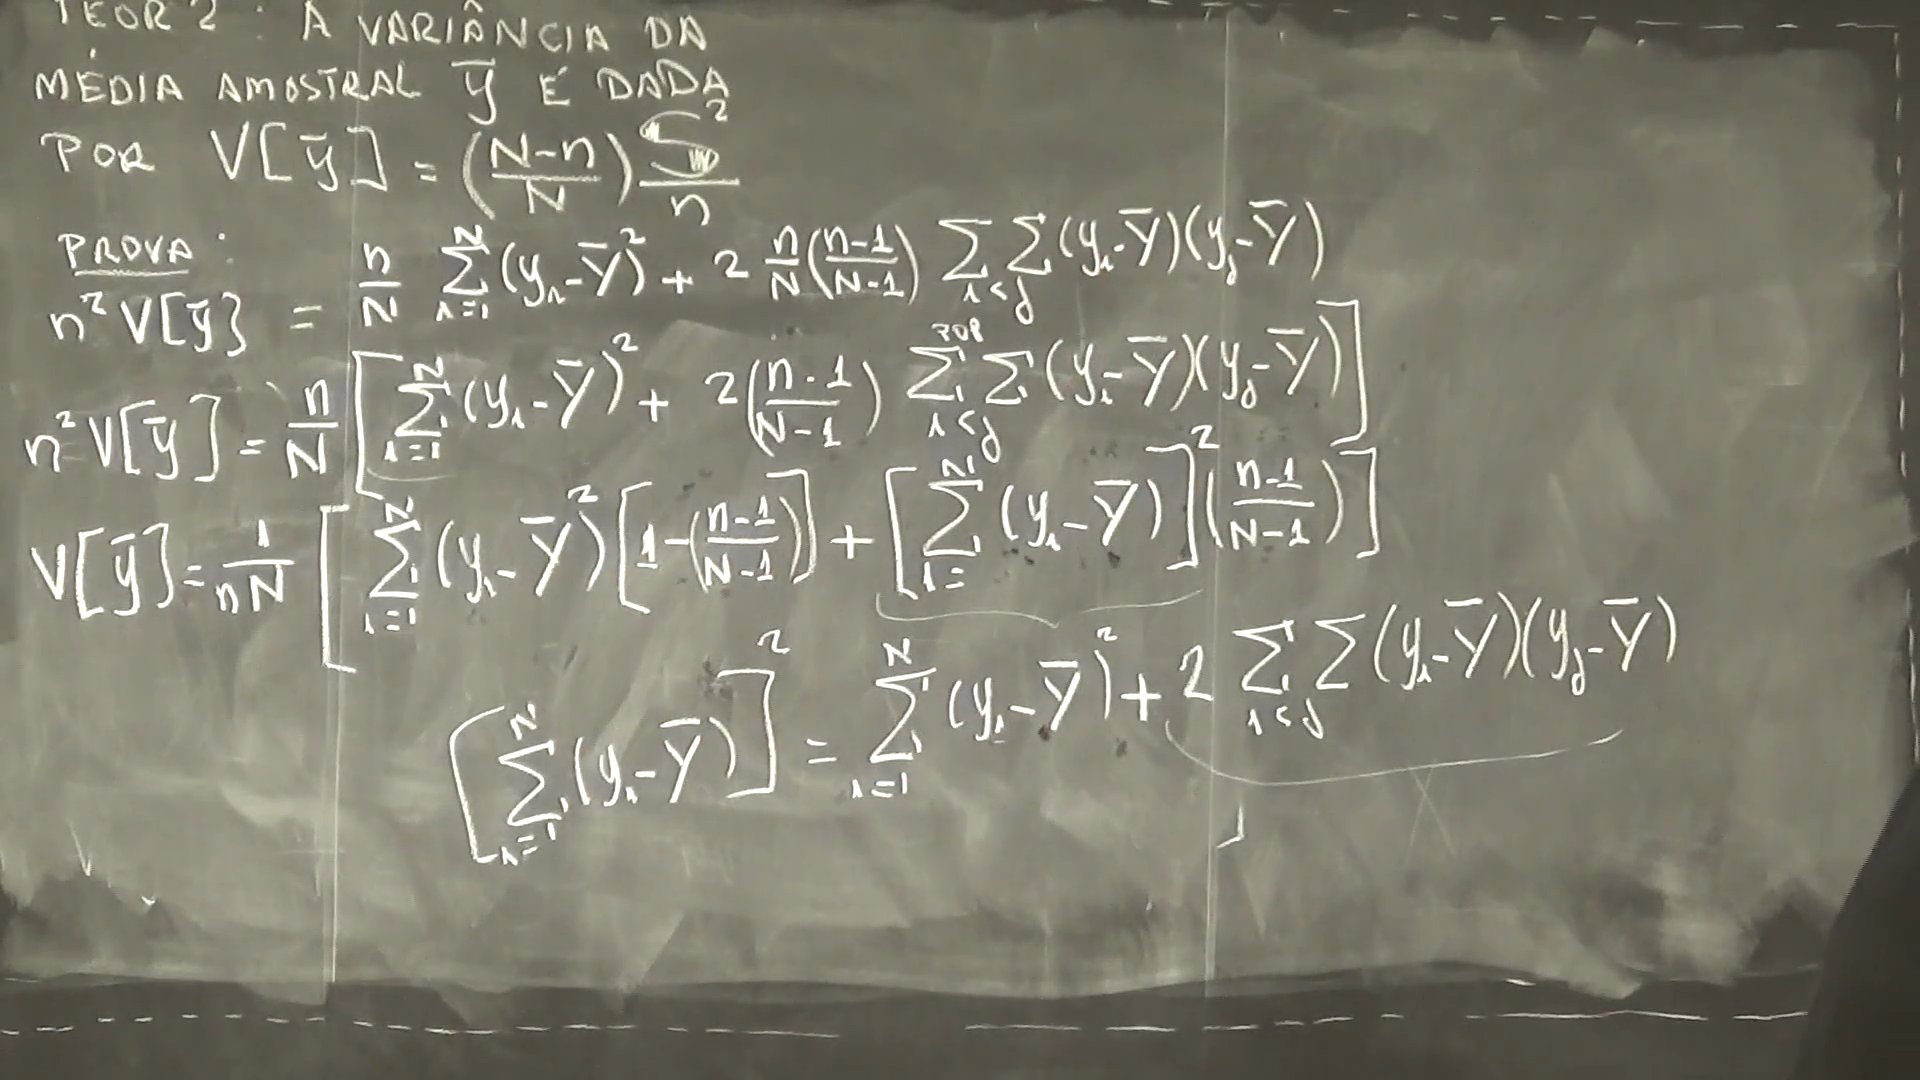 TEOR 2 : A VARIÂNCIA DA
MÉDIA AMOSTRAL ȳ É DADA
POR V[ȳ] = (N-n/N) S²/n
PROVA :
n² V[ȳ} = n/N ∑_{i=1}^{N} (y_i - Ȳ)² + 2 n/N (n-1/N-1) ∑∑_{i<j} (y_i - Ȳ)(y_j - Ȳ)
n² V[ȳ] = n/N [ ∑_{i=1}^{N} (y_i - Ȳ)² + 2 (n-1/N-1) ∑∑_{i<j}^{POP} (y_i - Ȳ)(y_j - Ȳ) ]
V[ȳ] = 1/nN [ ∑_{i=1}^{N} (y_i - Ȳ)² [1 - (n-1/N-1)] + [ ∑_{i=}^{N} (y_i - Ȳ) ]² (n-1/N-1) ]
[ ∑_{i=1}^{N} (y_i - Ȳ) ]² = ∑_{i=1}^{N} (y_i - Ȳ)² + 2 ∑∑_{i<j} (y_i - Ȳ)(y_j - Ȳ)